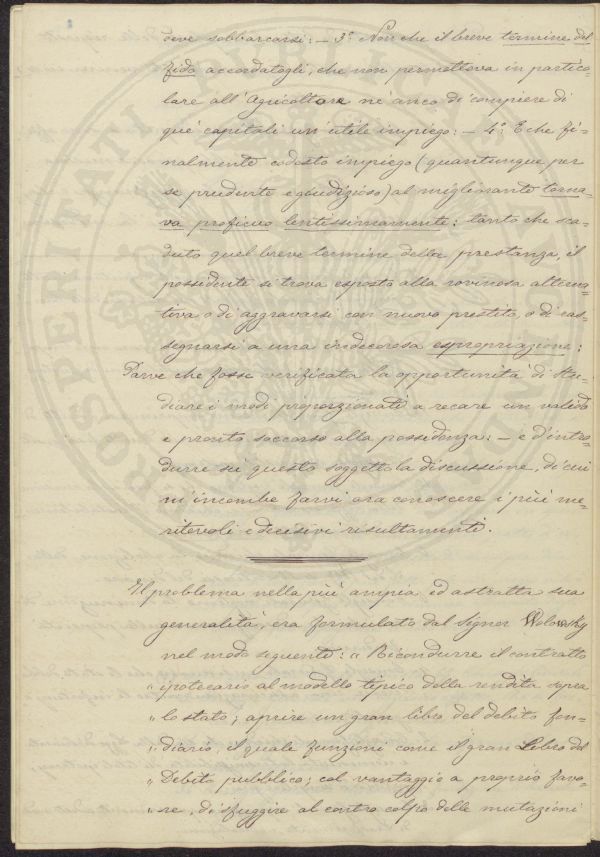 deve sobbarcarsi: — 3.° Non che il breve termine del
fido accordatogli, che non permetteva in partico-
lare all'Agricoltore nè anco di compiere di
que' capitali un'utile impiego: — 4.° E che fi-
nalmente codesto impiego (quantunque per
se prudente e giudizioso) al migliorante torna-
va proficuo lentissimamente: tanto che sca-
duto quel breve termine della prestanza, il
possidente si trova esposto alla rovinosa alterna-
tiva o di aggravarsi con nuovo prestito, o di ras-
segnarsi a una indecorosa espropriazione:
Parve che fosse verificata la opportunità di stu-
diare i modi proporzionati a recare un valido
e pronto soccorso alla possidenza: — e d'intro-
durre su questo soggetto la discussione, di cui
m'incombe farvi ora conoscere i più me-
ritevoli e decisivi risultamenti.
Il problema nella più ampia ed astratta sua
generalità, era formulato dal Signor Wolowsky
nel modo seguente: „ Ricondurre il contratto
„ ipotecario al modello tipico della rendita sopra
„ lo stato; aprire un gran libro del debito fon-
„ diario, il quale funzioni come il gran Libro del
„ Debito pubblico; col vantaggio a proprio favo-
„ re, di sfuggire al contro colpo delle mutazioni
PROSPERITATI PUBLICAE